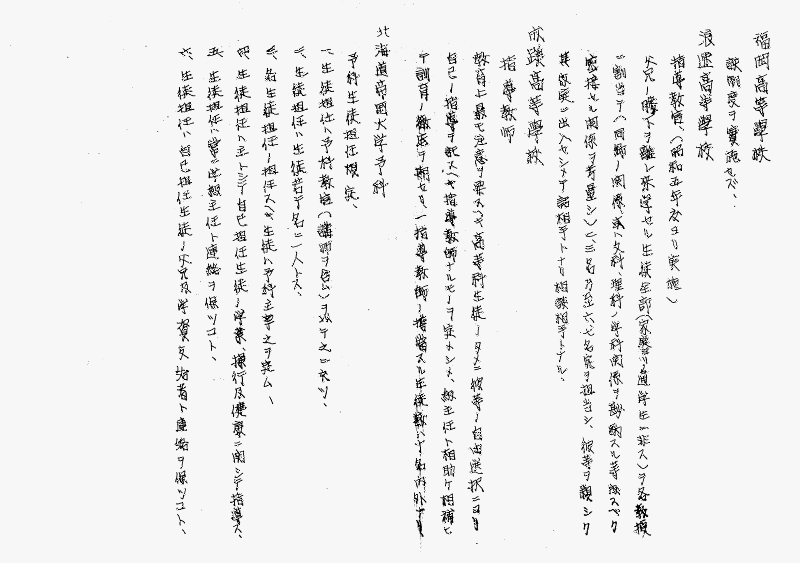 福岡高等學校
該制度ヲ實施セズ、
浪速高等學校
指導教官、(昭和五年度ヨリ実施)
父兄ノ膝下ヲ離レ來学セル生徒全部(家庭ヨリ通学生ニ非ス)ヲ各教授
ニ割当テ(同郷ノ関係、文科、理科ノ学科関係ヲ斟酌スル等成ルベク
密接セル関係ヲ考量シ)ニ、三名乃至六、七名宛ヲ担当シ、彼等ヲ親シク
其家庭ニ出入セシメテ話相手トナリ相談相手トナル、
府立高等學校
指導教師
教育上最モ注意ヲ要スベキ高等科生徒ノタメニ彼等ノ自由選択ニヨリ
自己ノ指導ヲ託スベキ指導教師ナルモノヲ定メシメ、級主任ト相助ケ相補ヒ
テ訓育ノ徹底ヲ期セリ、一指導教師ノ指導スル生徒数ハ十名内外ナリ
北海道帝国大学予科
予科生徒担任規定、
一、生徒担任ハ予科教官(講師ヲ含ム)ヲ以テ之ニ充ツ、
二、生徒担任ハ生徒若干名ニ一人トス、
三、各生徒担任ノ担任スベキ生徒ハ予科主事之ヲ定ム、
四、生徒担任ハ主トシテ自己担任生徒ノ学業、操行及健康ニ関シテ指導ス、
五、生徒担任ハ常ニ学級主任ト連絡ヲ保ツコト、
六、生徒担任ハ自己担任生徒ノ父兄及学資支給者ト連絡ヲ保ツコト、